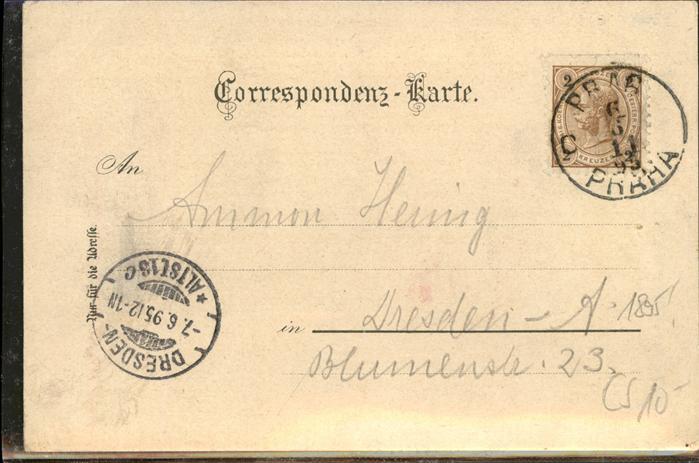 Correspondenz-Karte.
PRAG
6
6
11
95
PRAHA
2
KREUZER
An
Ammon Hering
Nur für die Adresse.
in Dresden - A. 1895
Blumenstr. 23.
CS 10-
DRESDEN-ALTST. 16 c
-7.6.95.12-1N